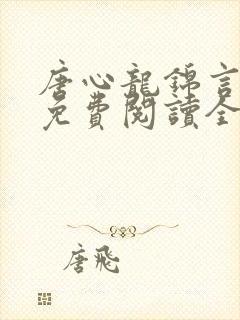 唐心龍錦言
免費閱讀全
唐飛